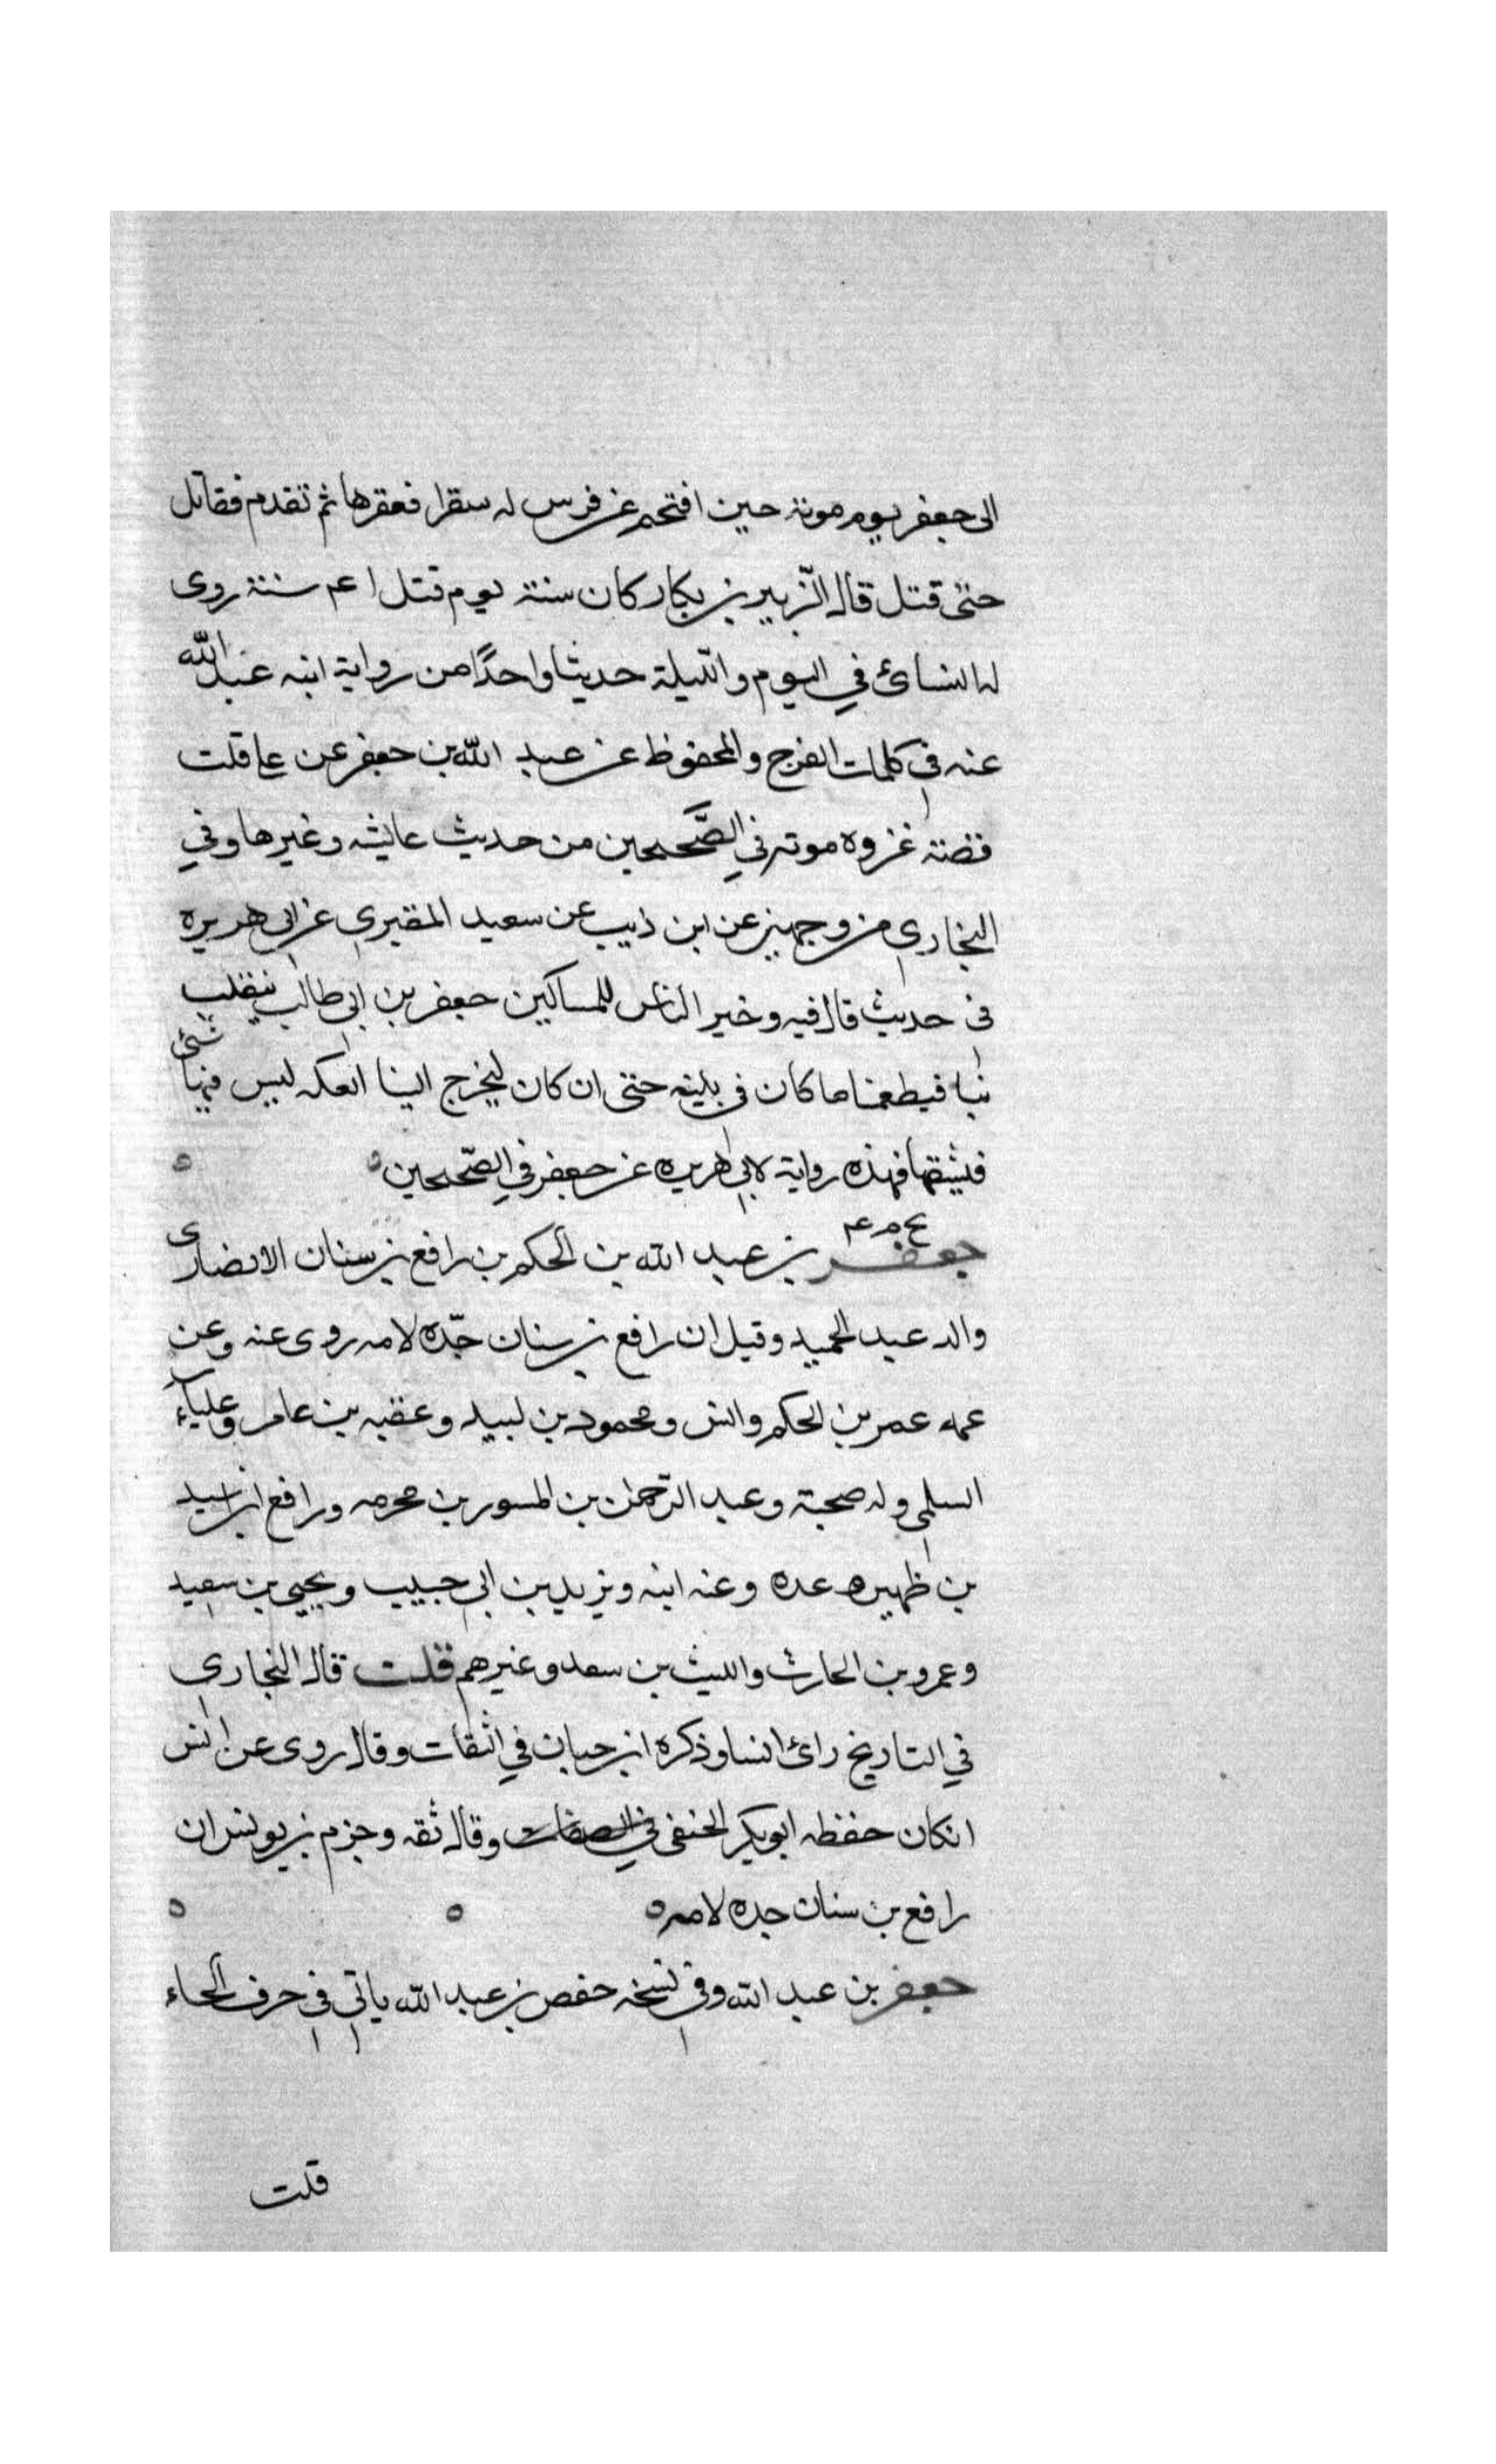 الى جعفر يوم موتة حين افتحم عن فرس له سقرا فعقرها ثم تقدم فقاتل
حتى قتل قال الزّبير بن بكار كان سنة يوم قتل ا عم سنة روى
له النسائ في اليوم والليلة حديثا واحدًا من رواية ابنه عبد الله
عنه في كلمات الفرج والمحفوظ عن عبد الله بن جعفر عن على قلت
قصة غزوه موته في الصَّحيحين من حديث عايشه وغيرها وفي
البخاري من وجهين عن ابن ذيب عن سعيد المقبري عن ابى هريره
فى حديث قال فيه وخير الناس للمساكين جعفر بن ابى طالب ينقلب
بنا فيطعمنا ما كان فى بيته حتى ان كان ليخرج الينا العكه ليس فيها شئ
فيشقها فهذه رواية لابى هريره عن جعفر في الصّحيحين ه ه
خ م عم
جعفر بن عبد الله بن الحكم بن رافع بن سنان الانصارى
والد عبد الحميد وقيل ان رافع بن سنان جدّه لامه روى عنه وعن
عمه عمر بن الحكم وانس ومحمود بن لبيد وعقبه بن عامر وعلباء
السلمى وله صحبة وعبد الرّحمن بن المسور بن مخرمه ورافع ابن اسيد
بن ظهيره عده وعنه ابنه ويزيد بن ابى حبيب ويحيى بن سعيد
وعمرو بن الحارث والليث بن سعد وغيرهم قلت قال البخاري
في التاريخ رائ انسا وذكره ابن حبان في الثقات وقال روى عن انس
انكان حفظه ابو بكر الحنفى وقال ثقه وجزم بن يونس ان
رافع بن سنان جده لامه ه ه ه
جعفر بن عبد الله وفى نسخه حفص بن عبد الله ياتى فى حرف الحاء
قلت